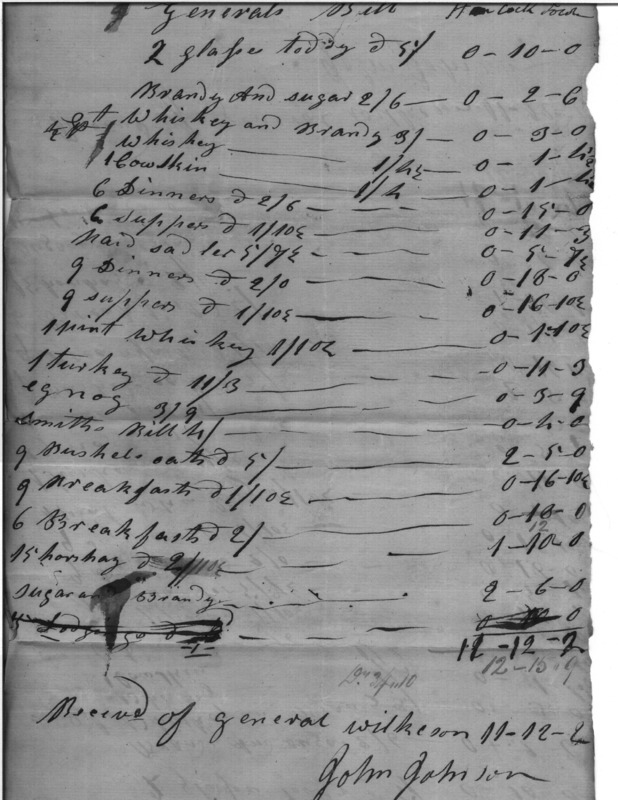 Generals Bill
2 glasse toddy @ 5/ 0-10-0
Brandy And sugar 2/6 — 0-2-6
Whiskey and Brandy 3/ — 0-3-0
Whiskey — 1/4½ 0-1-4½
1 Cowskin — 1/4 0-1-4
6 Dinners @ 2/6 — 0-15-0
6 suppers @ 1/10½ 0-11-3
paid sadler 5/7½ — 0-5-7½
9 Dinners @ 2/0 — 0-18-0
9 suppers @ 1/10½ — 0-16-10½
1 pint Whiskey 1/10½ — 0-1-10½
1 turkey @ 11/3 — 0-11-3
egnog 3/9 — 0-3-9
Smiths Bill 4/ — 0-4-0
9 Bushels oats @ 5/ — 2-5-0
9 Breakfasts @ 1/10½ — 0-16-10½
6 Breakfasts @ 2/ — 0-12-0
15 horshay @ 2/ 1-10-0
sugar and Brandy — 2-6-0
11-12-2
12-15-9
Receivd of general wilkeson 11-12-2
John Johnson